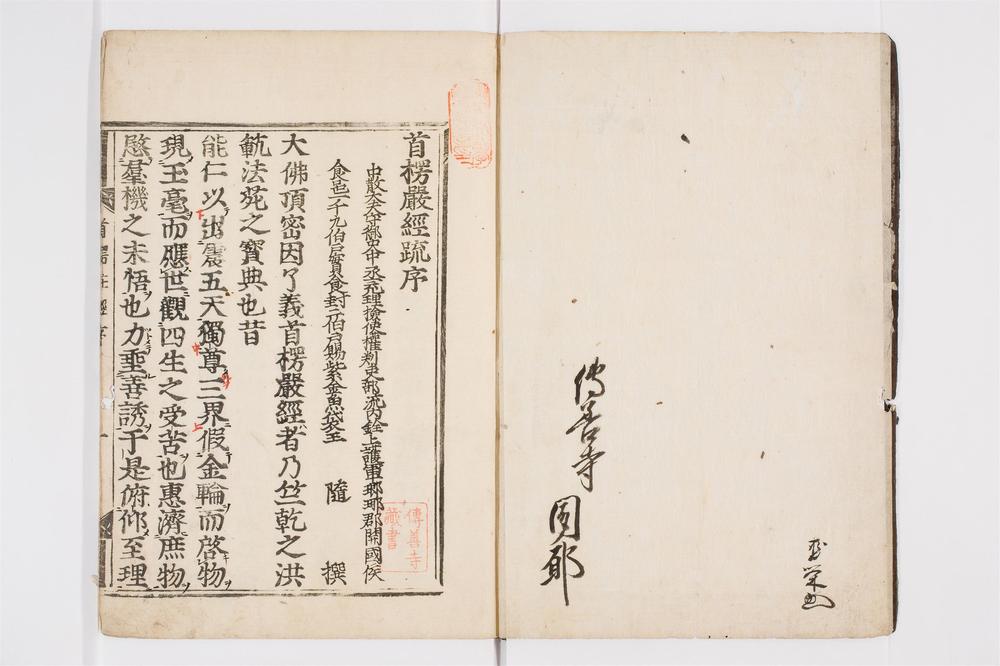 傳善寺
圓郎
首楞嚴經疏序
中散大夫守御史中丞充理檢使權判吏部流內銓上護軍瑯琊郡開國侯
食邑一千九伯戶實食封二伯戶賜紫金魚袋王 隨 撰
大佛頂密因了義首楞嚴經者乃竺乾之洪
範法菀之寶典也昔
能仁以出震五天獨尊三界假金輪而啓物
現玉毫而應世觀四生之受苦也惠濟庶物
愍羣機之未悟也力垂善誘于是俯仰至理
傳善寺
藏書